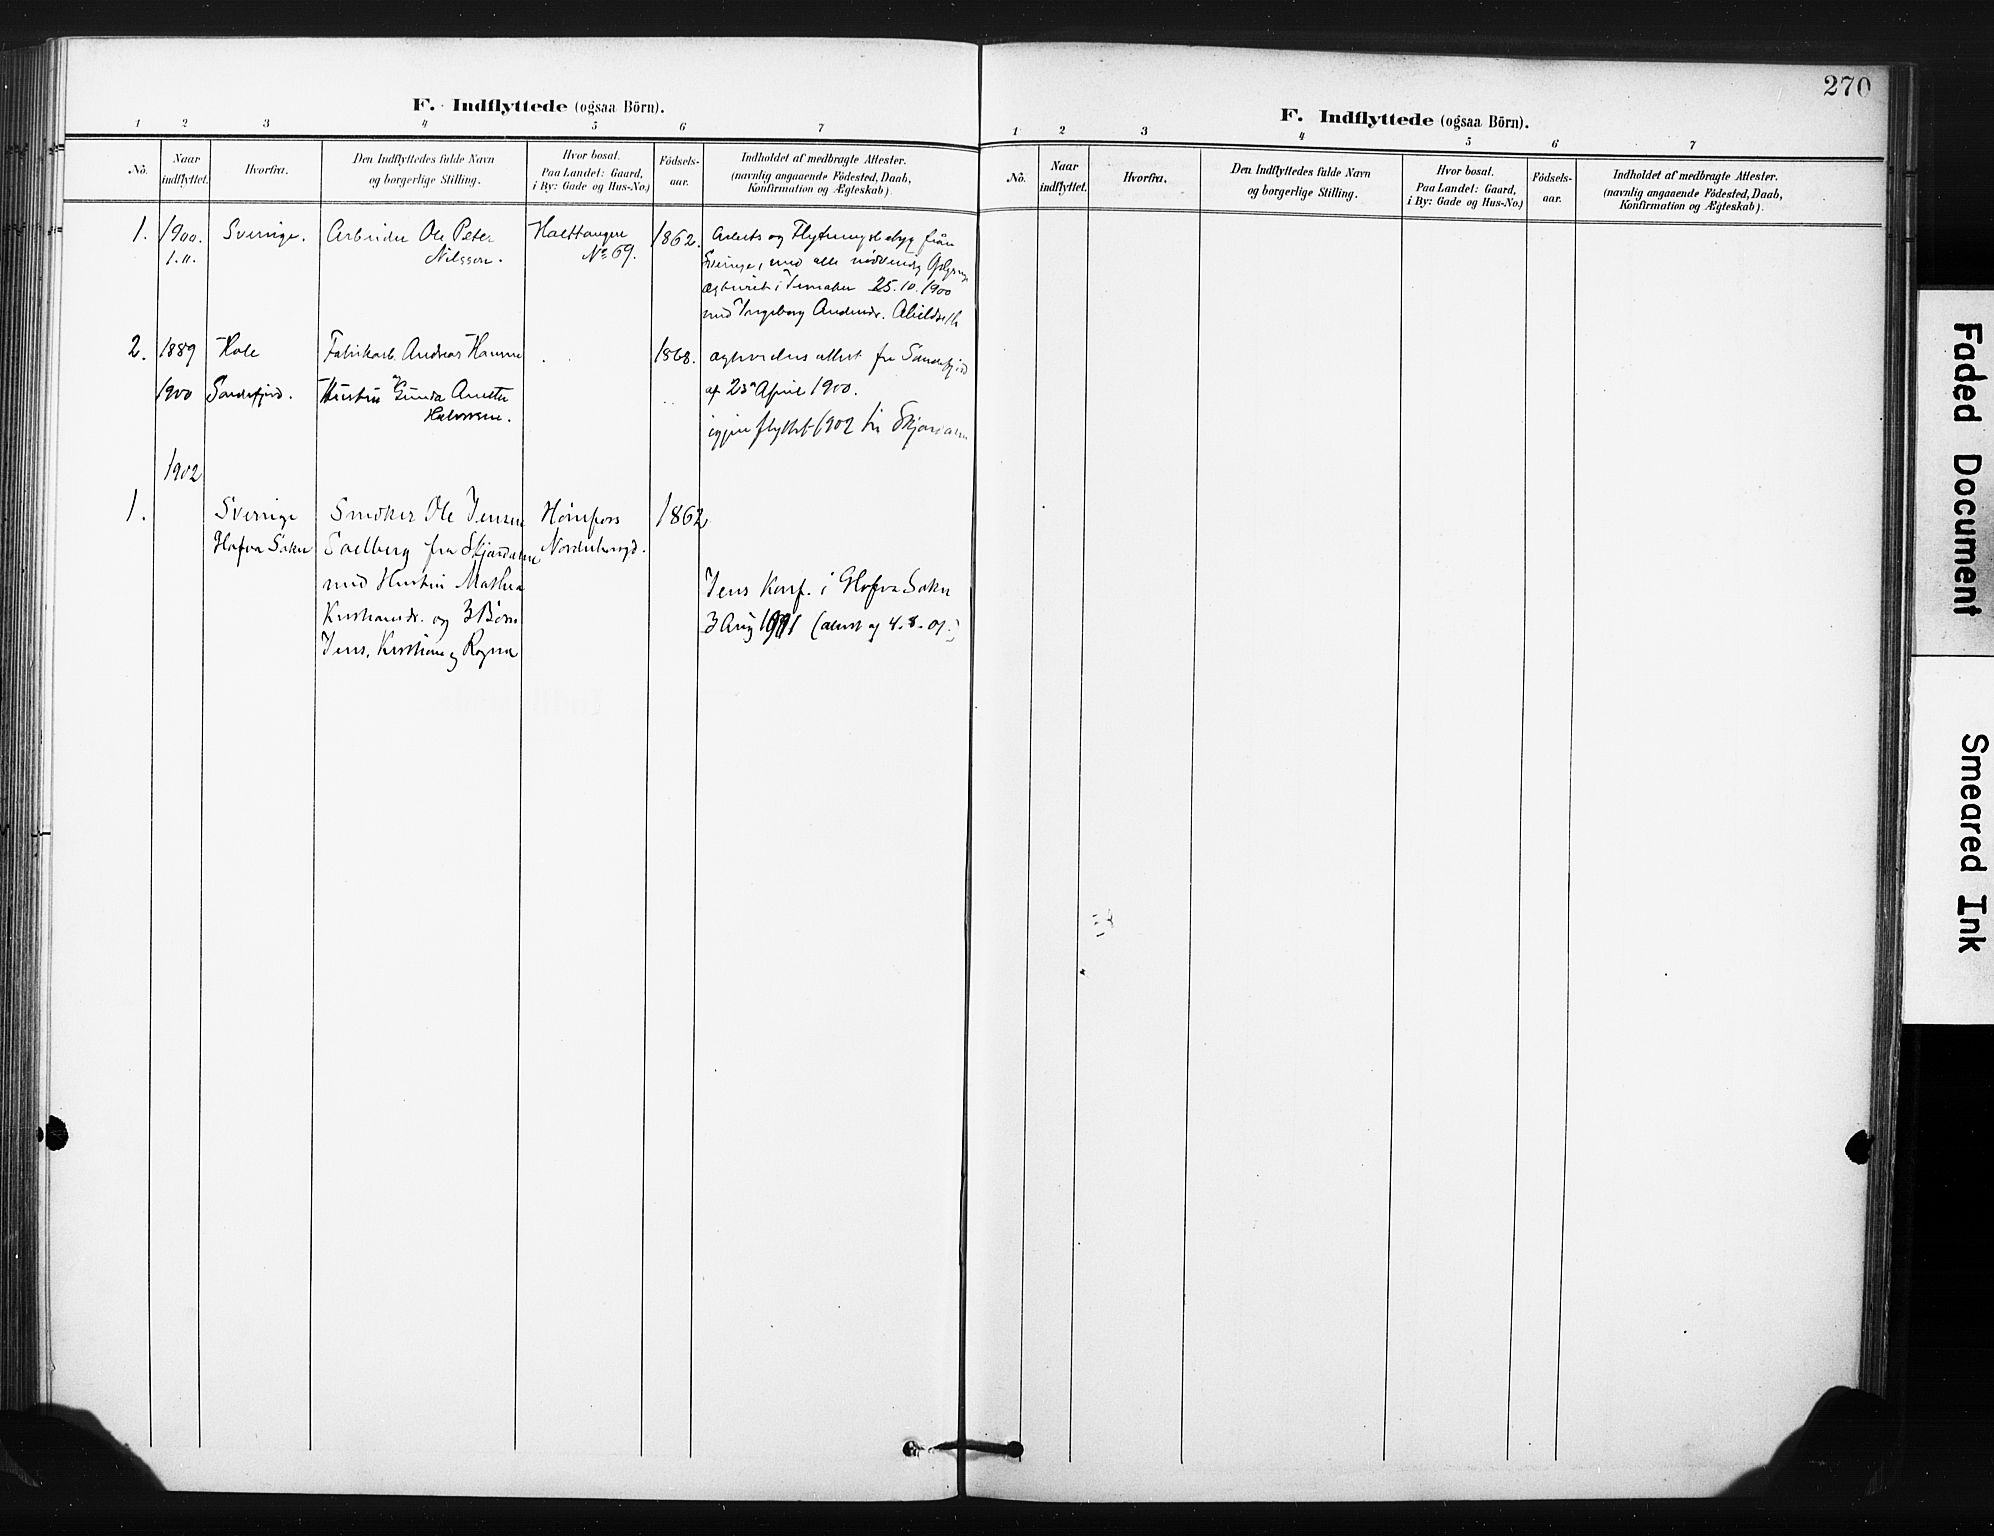 270
F. Indflyttede (ogsaa Börn).
1 2 3 4 5 6 7
No.
Naar
indflyttet.
Hvorfra.
Den Indflyttedes fulde Navn
og borgerlige Stilling.
Hvor bosat.
Paa Landet: Gaard,
i By: Gade og Hus-No.)
Födsels-
aar.
Indholdet af medbragte Attester.
(navnlig angaaende Födested, Daab,
Konfirmation og Ægteskab).
1. 1900. Sverige. Arbeider Ole Peter
1.11. Nilsson.
No 69.
1862.
Arbeids og fra
Sverige, med alle
i 25.10.1900
med Ingeborg Andersdr.
2. 1889 Hole Fabrikarb. Andreas
1868.
attest fra Sandefjord
1900 Sandefjord. Hustru Gunda
Halvorsen.
af 23 April 1900.
igjen flyttet 1902 til Skjærdalen
1902
1. Sverige Smöker Ole Jensen Hönefos 1862
Hofva Soken Soelberg fra Skjærdalen Norderhougd.
med Hustru Mathea
Kristiansdr. og 3 Börn
Jens, Kristiane og Ragna
Jens Konf. i Hofva Soken
3 Aug 1901 (attest af 4.8.01.)
F. Indflyttede (ogsaa Börn).
1 2 3 4 5 6 7
No.
Naar
indflyttet.
Hvorfra.
Den Indflyttedes fulde Navn
og borgerlige Stilling.
Hvor bosat.
Paa Landet: Gaard,
i By: Gade og Hus-No.)
Födsels-
aar.
Indholdet af medbragte Attester.
(navnlig angaaende Födested, Daab,
Konfirmation og Ægteskab).
Faded Document
Smeared Ink